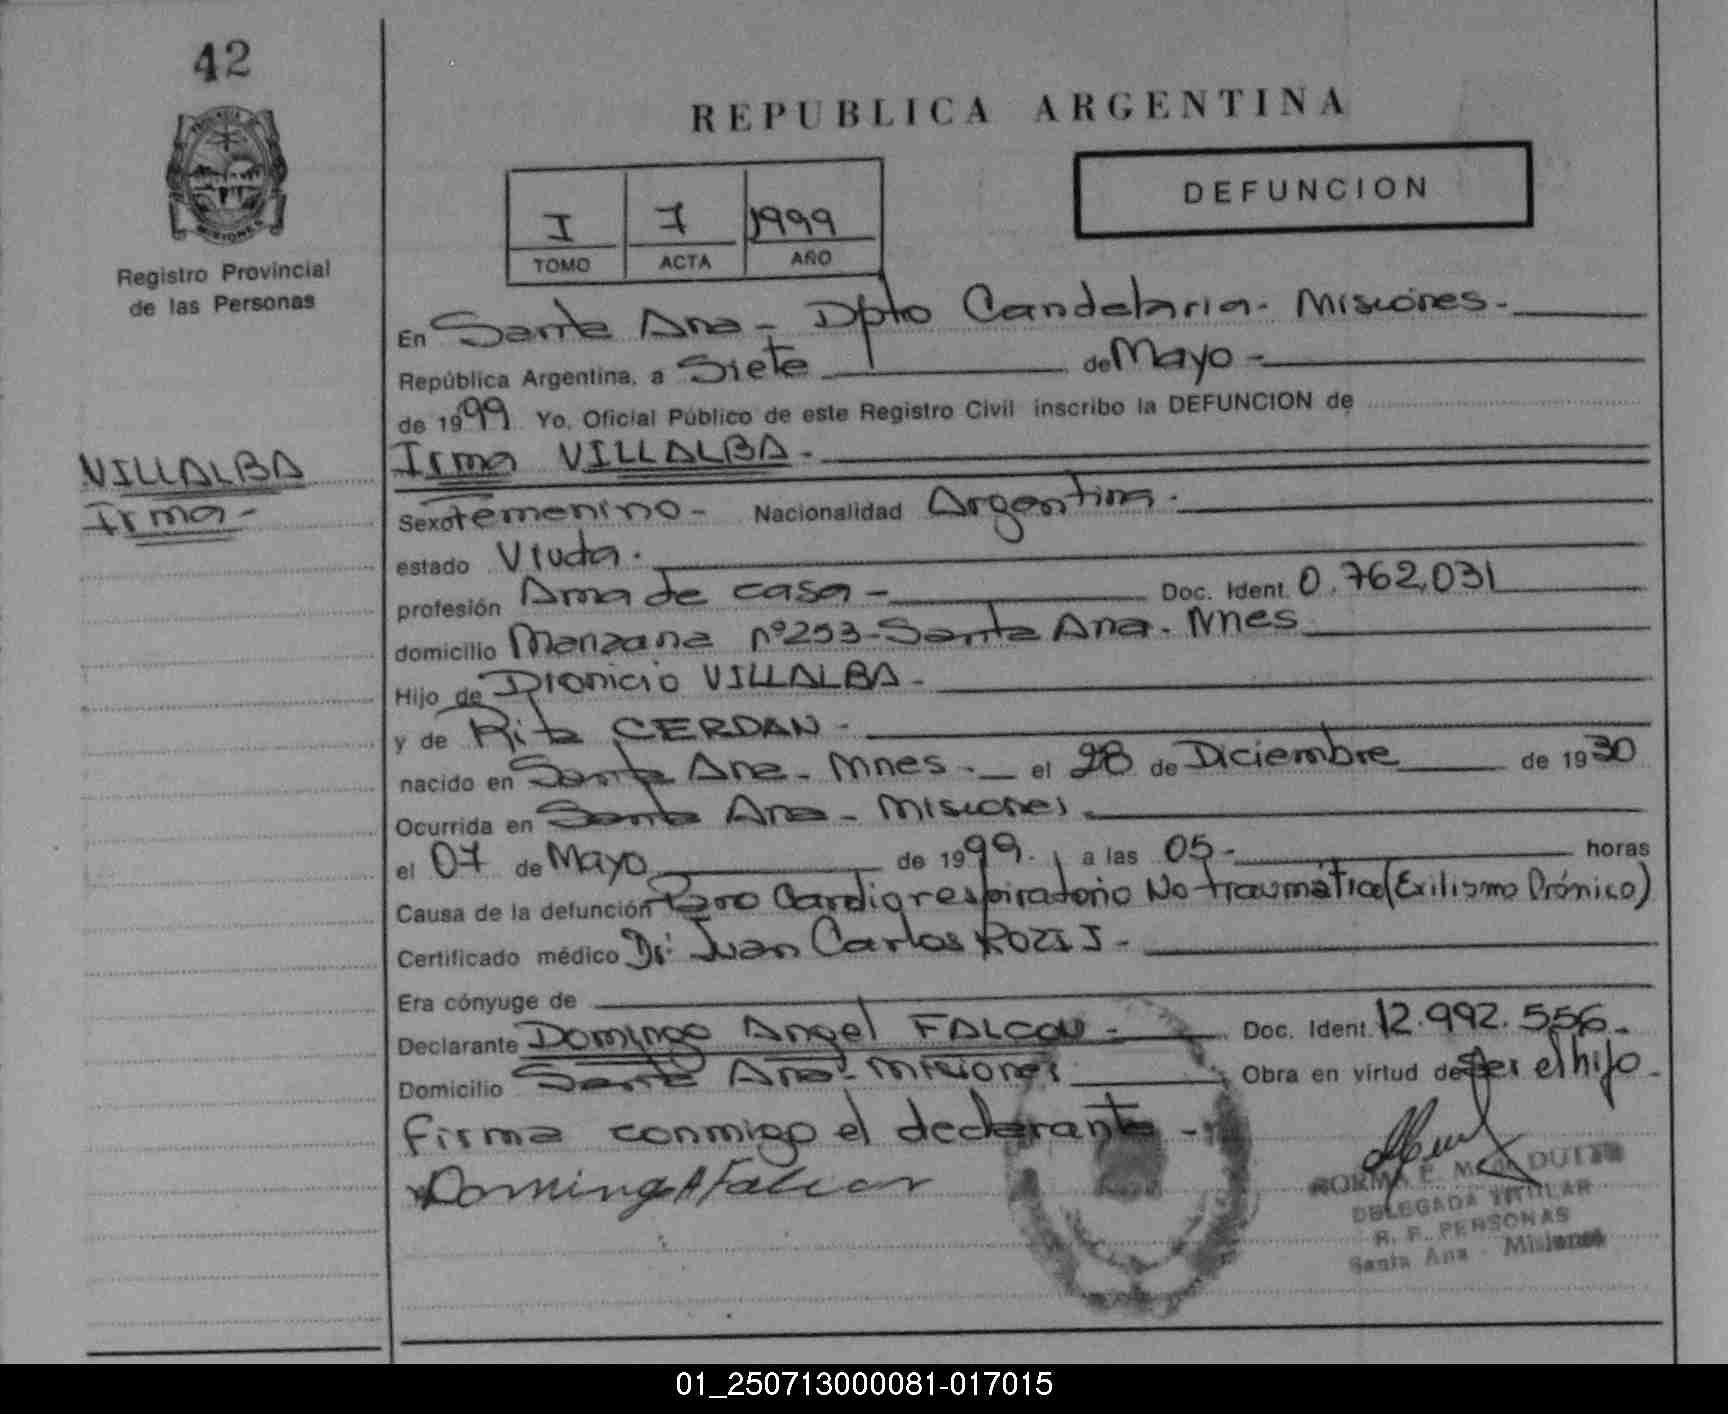 42
REPUBLICA ARGENTINA
DEFUNCION
I 7 1999
TOMO ACTA AÑO
MISIONES
Registro Provincial
de las Personas
En Santa Ana - Dpto Candelaria - Misiones -
República Argentina, a Siete de Mayo -
de 1999 Yo, Oficial Público de este Registro Civil inscribo la DEFUNCION de
VILLALBA
Irma -
Irma VILLALBA -
Sexo femenino - Nacionalidad Argentina -
estado Viuda -
profesión Ama de casa - Doc. Ident. 0.762.031
domicilio Manzana nº253 - Santa Ana - Mnes
Hijo de Dionicio VILLALBA -
y de Rita CERDAN -
nacido en Santa Ana - Mnes - el 28 de Diciembre de 1930
Ocurrida en Santa Ana - Misiones
el 07 de Mayo de 1999 a las 05 - horas
Causa de la defunción Paro Cardiorespiratorio No traumático
Certificado médico Dr: Juan Carlos
Era cónyuge de
Declarante Domingo Angel FALCON - Doc. Ident. 12.992.556 -
Domicilio Santa Ana - Misiones Obra en virtud de ser el hijo -
Firma conmigo el declarante -
Domingo A Falcon
NORMA E.
DELEGADA TITULAR
R. P. PERSONAS
Santa Ana - Misiones
01_250713000081-017015